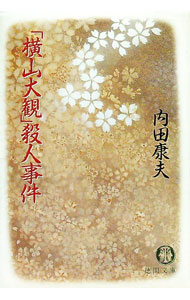 「横山大観」殺人事件
内田康夫
徳間文庫